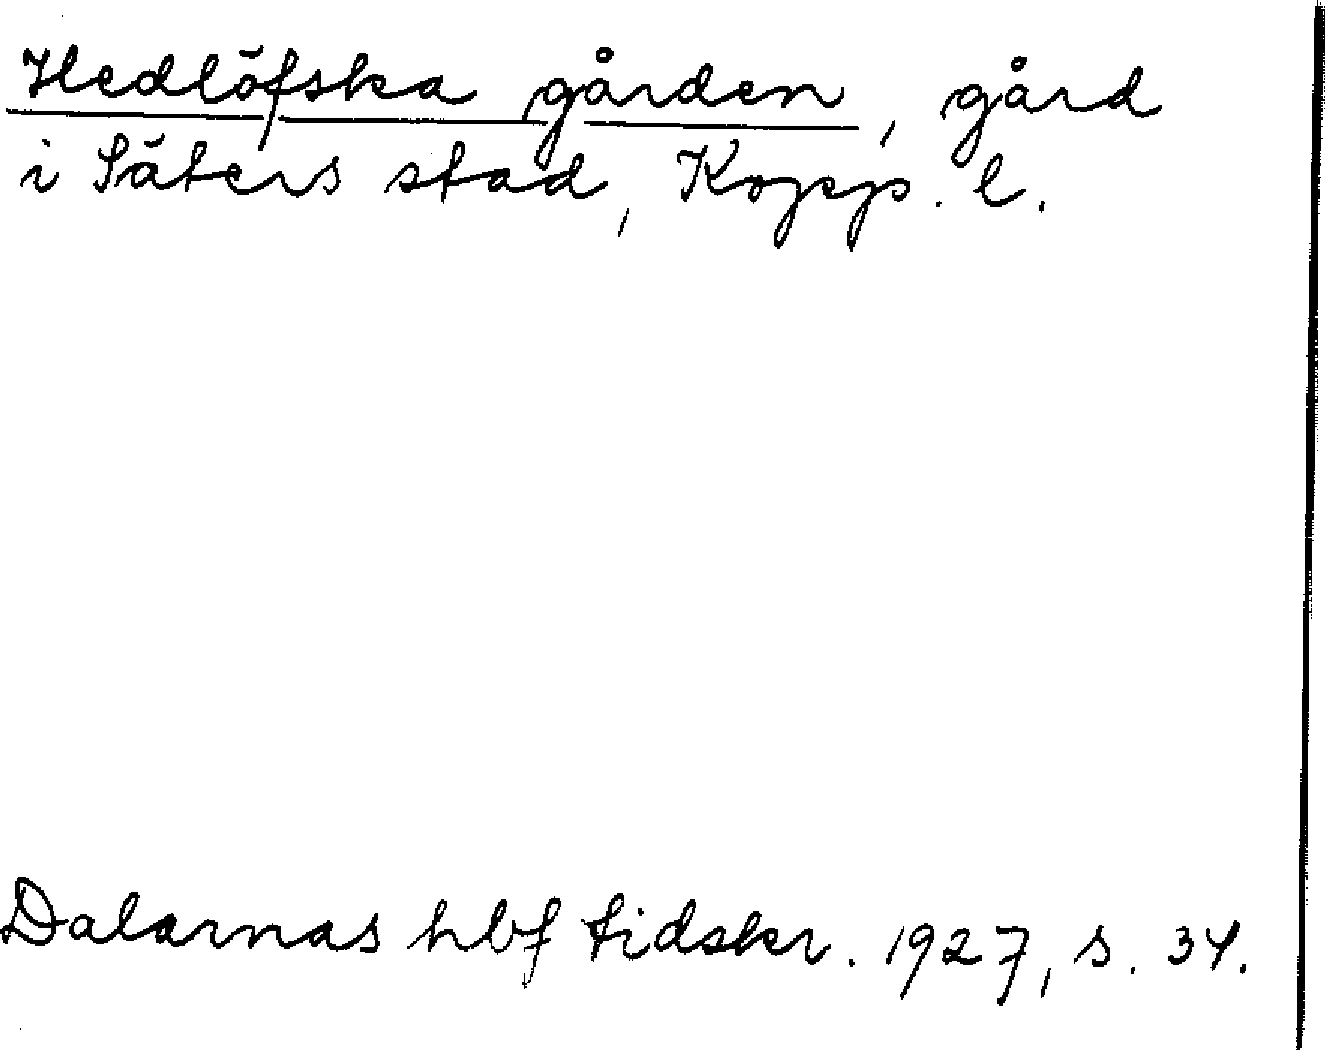 Hedlöfska gården, gård
i Säters stad, Kopp. l.
Dalarnas hbf tidskr. 1927, s. 34.